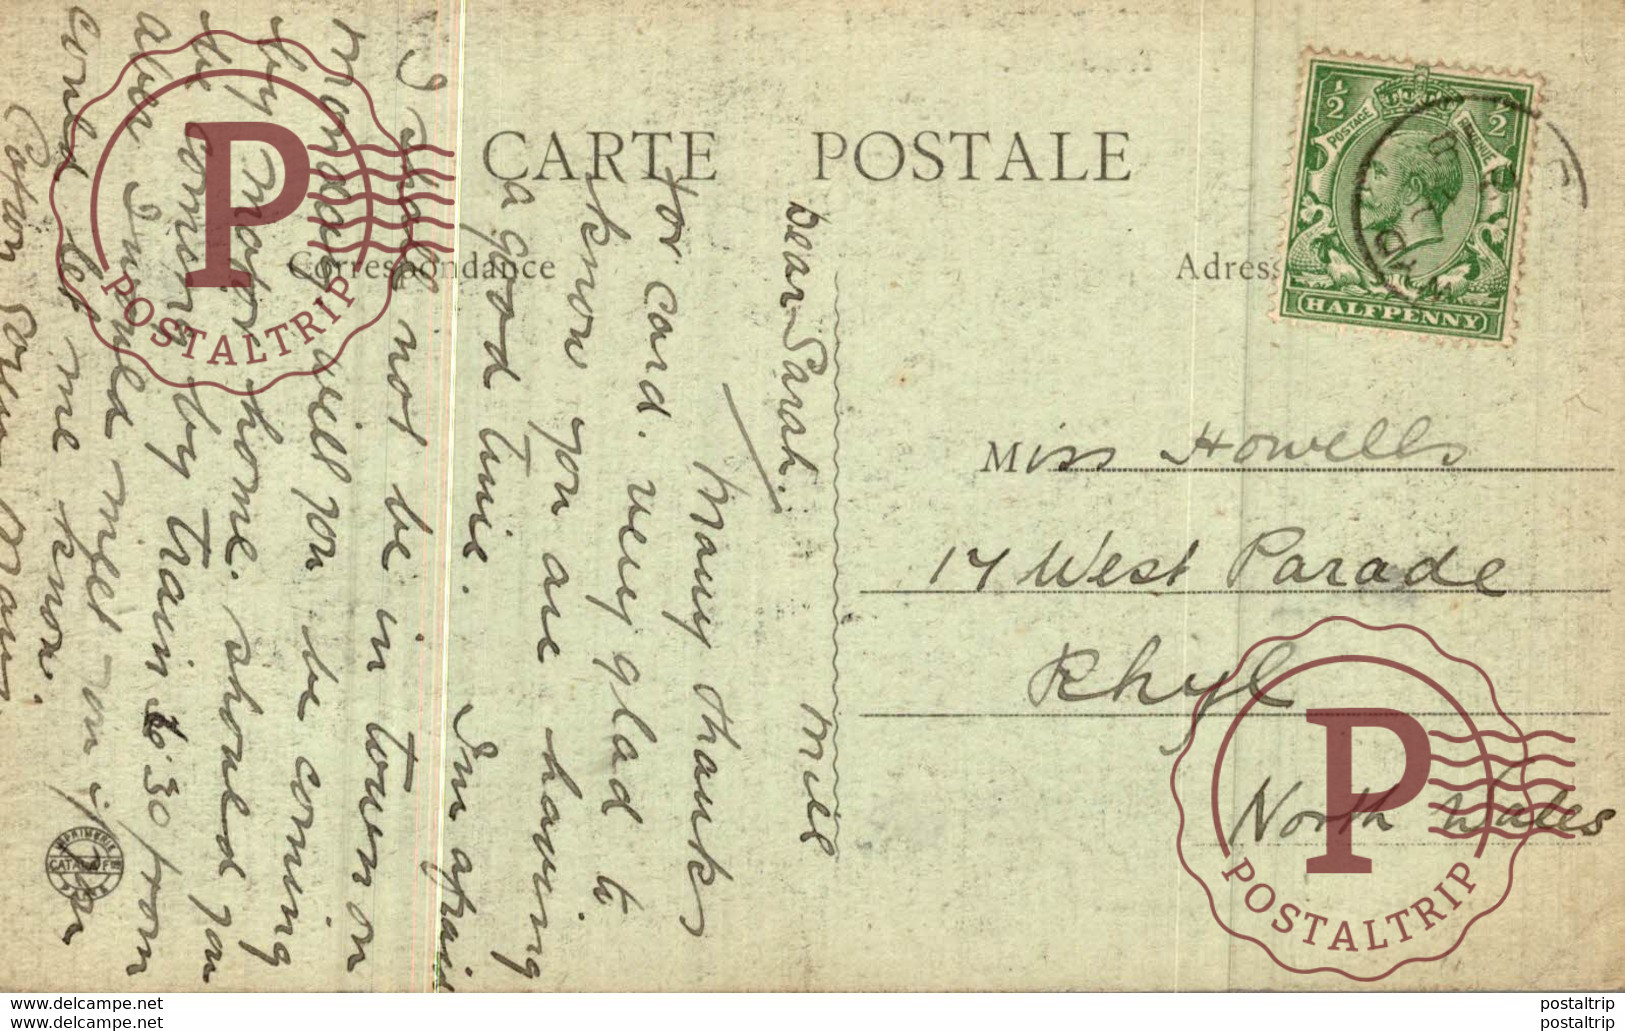 CARTE POSTALE
Correspondance
Adress
½ ½
POSTAGE REVENUE
HALFPENNY
Mill
Dear Sarah.
Many thanks
for card. very glad to
know you are having
a good time. Im afraid
I shall not be in town on
Monday will you be coming
by Major home. should you
be coming by train 6.30 from
I would meet you if you
could let me know.
Miss Howells
17 West Parade
Rhyl
North Wales
IMPRIMERIE
CATALA Fres
PARIS
P
POSTALTRIP
P
POSTALTRIP
www.delcampe.net
www.delcampe.net
postaltrip
postaltrip